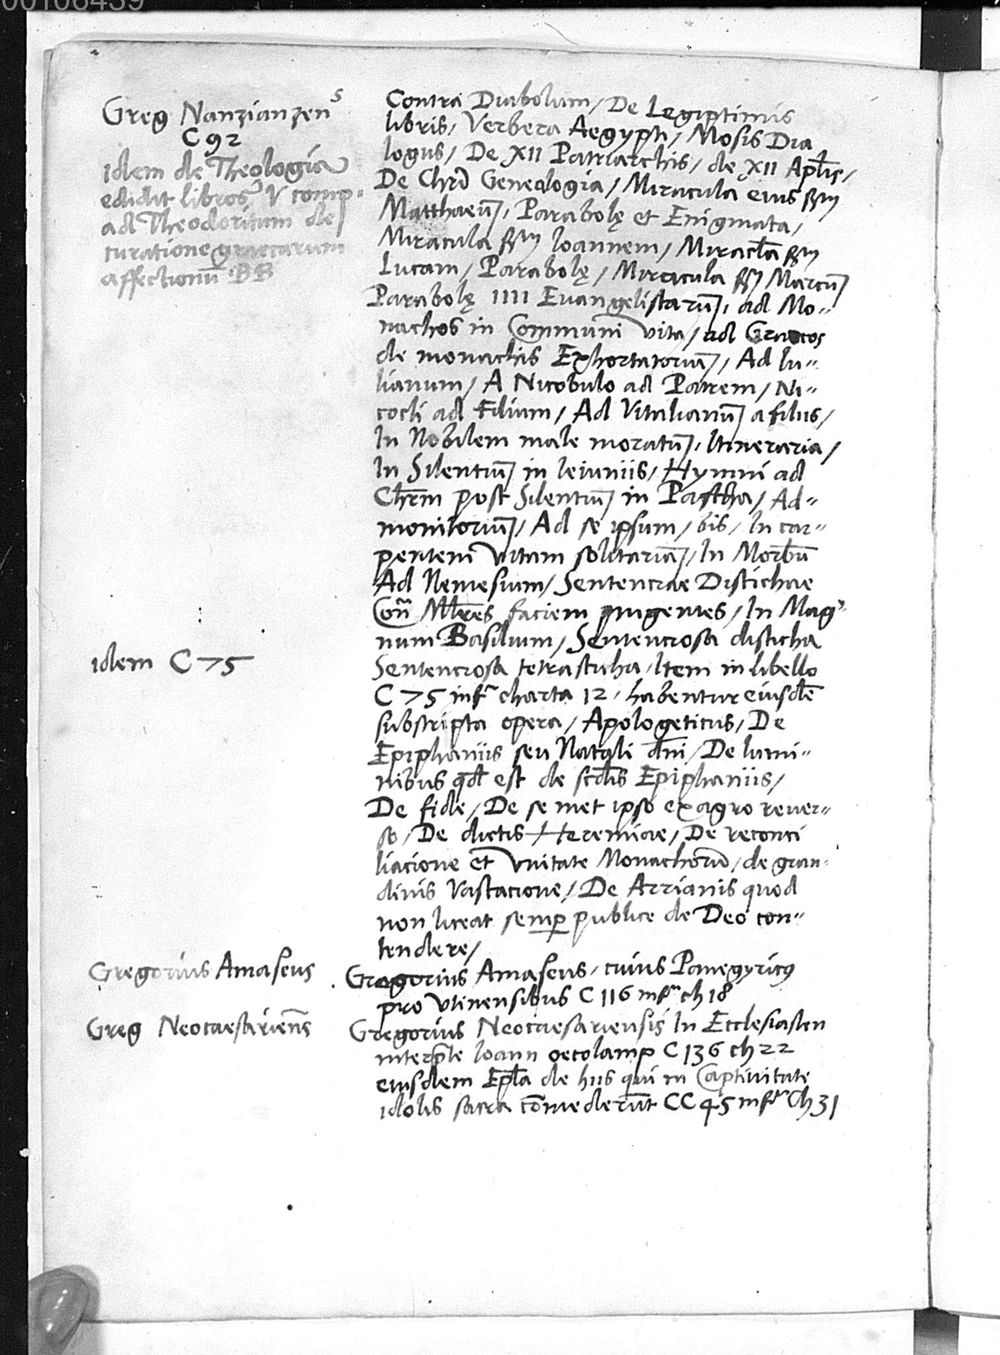 00106439
Greg Nanzianzenˢ
C 92
idem de Theologia
edidit libros V comp
ad Theodoritum de
curatione graecarum
affectionũ BB
Contra Diabolum / De Legiptimis
libris / Verbera Aegypti / Mosis Dia
logus / De XII Patriarchis / de XII Apl̃is /
De Chri Genealogia / Miracula eius ẞm
Matthaeũ / Parabolę et Enigmata /
Miracula ẞm Ioannem / Miracl̃a ẞm
Lucam / Parabolę / Miracula ẞm Marcũ
Parabolę IIII Euangelistarũ / ad Mo=
nachos in Communi vita / ad Graecos
de monachis Exhortatoriũ / Ad Iu=
lianum / A Nicobulo ad Patrem / Ni=
cocli ad Filium / Ad Vitalianũ a filiis /
In Nobilem male moratũ / Itineraria /
In Silentiũ in ieiuniis / Hymni ad
Chr̃m post Silentiũ in Pascha / Ad=
monitoriũ / Ad se ipsum / bis / In car=
pentem vitam solitariã / In Morbũ
Ad Nemesium / Sentenciae Distichae
Coñ Ml̃res faciem pingentes / In Mag=
num Basilium / Sentenciosa disticha
Sentenciosa tetrasticha / Item in libello
C 75 infᵃ charta 12 / habentur eiusdẽ
subscripta opera / Apologeticus / De
Epiphaniis seu Natali dñi / De lumi=
nibus qd̃ est de scd̃is Epiphaniis /
De fide / De se met ipso ex agro reuer=
so / De dictis Heremiae / De reconci
liacione et vnitate Monachorũ / de gran=
dinis vastacione / De Arrianis quod
non liceat semp̱ publice de Deo con=
tendere /
idem C 75
Gregorius Amaseus
Gregorius Amaseus / cuius Panegyricꝰ
pro Vtinensibus C 116 infᵃ ch 18
Greg Neocaesariens̃
Gregorius Neocaesariensis In Ecclesiasten
interp̃te Ioann oecolamp C 136 ch 22
eiusdem Epl̃a de hiis qui in Captiuitate
idolis sacra cõmederũt CC 45 infᵃ Ch 31